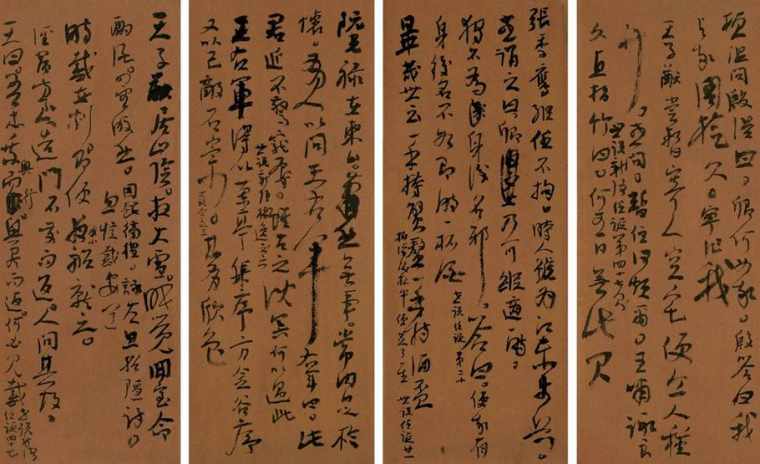 桓温問殷浩曰。卿何如我。殷答曰我
與我周旋久。寧作我
王子猷嘗暫寄人空宅便令人種
竹。或問。暫住何煩爾。王嘯詠良
世説新語任誕第四十六
久直指竹曰。何可一日無此君
張季鷹縱任不拘。時人號為江東步兵。
或謂之曰卿乃可縱適一時。
獨不為身後名邪。答曰。使我有
身後名不如即時一杯酒 世説任誕第二十
畢茂世云一手持蟹螯一手持酒盃
拍浮酒池中便足了一生 世説任誕廿一
阮光禄在東山。蕭然無事。常内足於
懷。有人以問王右軍。右軍曰。此
君近不驚寵辱。雖古之沈冥何以過此
世説新語棲逸之六
王右軍得人以蘭亭集序方金谷序
又以己敵石崇。甚有欣色
王子猷居山陰。夜大雪。眠覺開室命
酌酒。四望皎然。因起彷徨。詠左思招隱詩。
忽憶戴安道
時戴在剡即便夜乘船就之。
經宿方至造門不前而返。人問其故。
王曰。吾本乘興而行興盡而返。何必見戴 世説任誕四十七